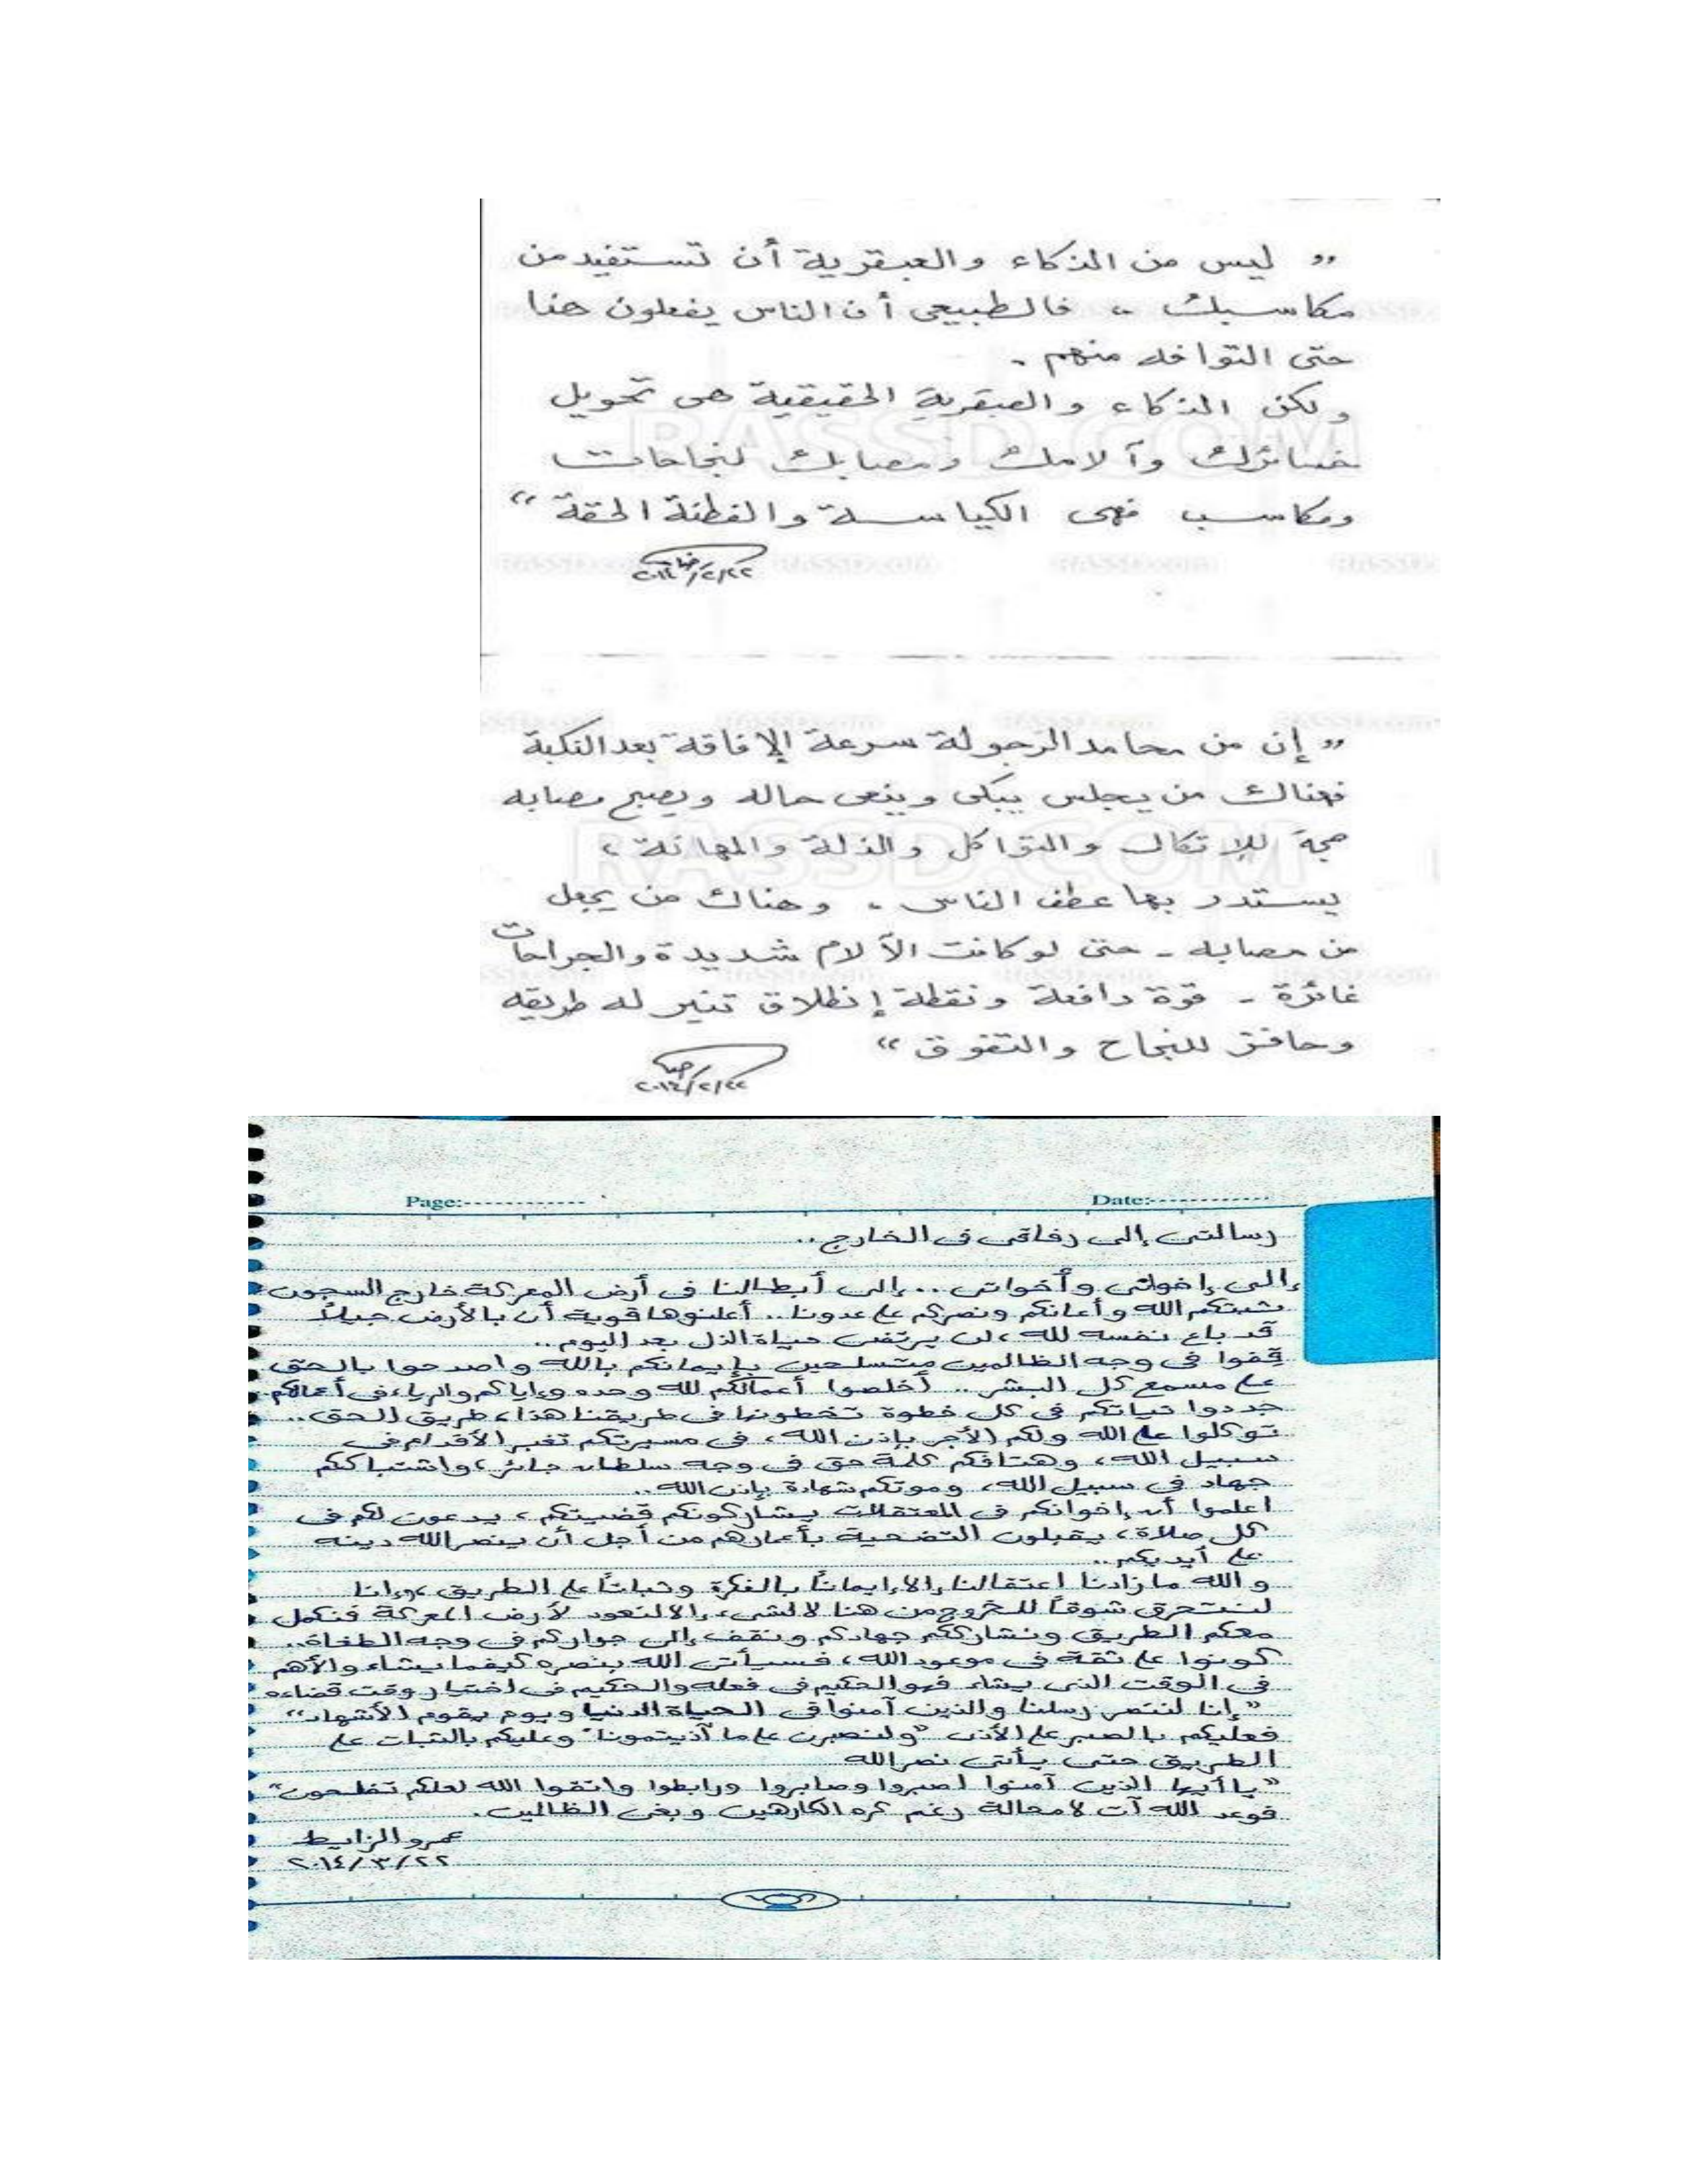 " ليس من الذكاء والعبقرية أن تستفيد من
مكاسبك ، فالطبيعى أن الناس يفعلون هذا
حتى التوافه منهم .
ولكن الذكاء والعبقرية الحقيقية هى تحويل
خسائرك وآلامك ومصابك لنجاحات
ومكاسب فهى الكياسة والفطنة الحقة "
٢٠١٤/٢/٢٢
RASSD.COM
" إن من محامد الرجولة سرعة الإفاقة بعد النكبة
فهناك من يجلس يبكى وينعى حاله ويصبح مصابه
حجة للإتكال والتواكل والذلة والمهانة ،
يستدر بها عطف الناس . وهناك من يجعل
من مصابه - حتى لو كانت الآلام شديدة والجراحات
غائرة - قوة دافعة ونقطة إنطلاق تنير له طريقه
وحافز للنجاح والتفوق "
٢٠١٤/٢/٢٢
RASSD.COM
Page:------------ Date:------------
رسالتى إلى رفاقى فى الخارج ..
إلى إخوانى وأخواتى .. إلى أبطالنا فى أرض المعركة خارج السجون
ثبتكم الله وأعانكم ونصركم على عدونا .. أعلنوها قوية أن بالأرض جيلاً
قد باع نفسه لله ، لن يرتضى حياة الذل بعد اليوم ..
قفوا فى وجه الظالمين متسلحين بإيمانكم بالله واصدحوا بالحق
على مسمع كل البشر .. أخلصوا أعمالكم لله وحده وإياكم والرياء فى أعمالكم
جددوا نياتكم فى كل خطوة تخطونها فى طريقنا هذا ، طريق الحق ..
توكلوا على الله ولكم الأجر بإذن الله ، فى مسيرتكم تغبر الأقدام فى
سبيل الله ، وهتافكم كلمة حق فى وجه سلطان جائر ، واشتباككم
جهاد فى سبيل الله ، وموتكم شهادة بإذن الله ..
اعلموا أن إخوانكم فى المعتقلات يشاركونكم قضيتكم ، يدعون لكم فى
كل صلاة ، يقبلون التضحية بأعمارهم من أجل أن ينصر الله دينه
على أيديكم ..
والله ما زادنا اعتقالنا إلا إيماناً بالفكرة وثباتاً على الطريق ، وإنا
لنتحرق شوقاً للخروج من هنا لا لشىء ، إلا لنعود لأرض المعركة فنكمل
معكم الطريق ونشارككم جهادكم ونقف إلى جواركم فى وجه الطغاة ..
كونوا على ثقة فى موعود الله ، فسيأتى الله بنصره كيفما يشاء والأهم
فى الوقت الذى يشاء فهو الحكيم فى فعله والحكيم فى اختيار وقت قضاءه
" إنا لننصر رسلنا والذين آمنوا فى الحياة الدنيا ويوم يقوم الأشهاد "
فعليكم بالصبر على الأذى " ولنصبرن على ما آذيتمونا " وعليكم بالثبات على
الطريق حتى يأتى نصر الله
" يا أيها الذين آمنوا اصبروا وصابروا ورابطوا واتقوا الله لعلكم تفلحون "
فوعد الله آت لا محالة رغم كره الكارهين وبغى الظالمين .
عمرو الزايط
٢٠١٤/٣/٢٢